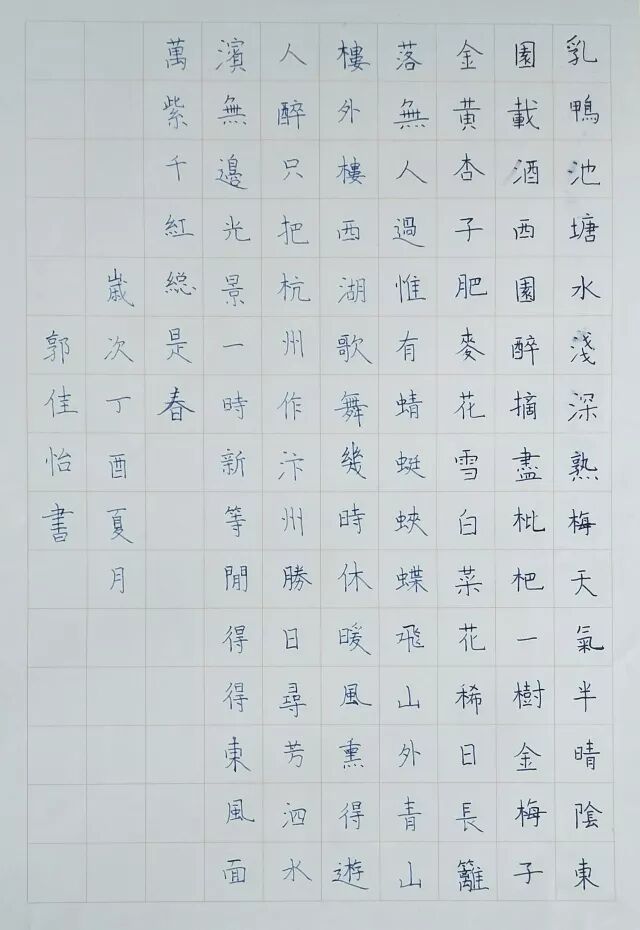 乳鴨池塘水淺深熟梅天氣半晴陰東
園載酒西園醉摘盡枇杷一樹金梅子
金黃杏子肥麥花雪白菜花稀日長籬
落無人過惟有蜻蜓蛺蝶飛山外青山
樓外樓西湖歌舞幾時休暖風熏得遊
人醉只把杭州作汴州勝日尋芳泗水
濱無邊光景一時新等閒得得東風面
萬紫千紅総是春
歲次丁酉夏月
郭佳怡書